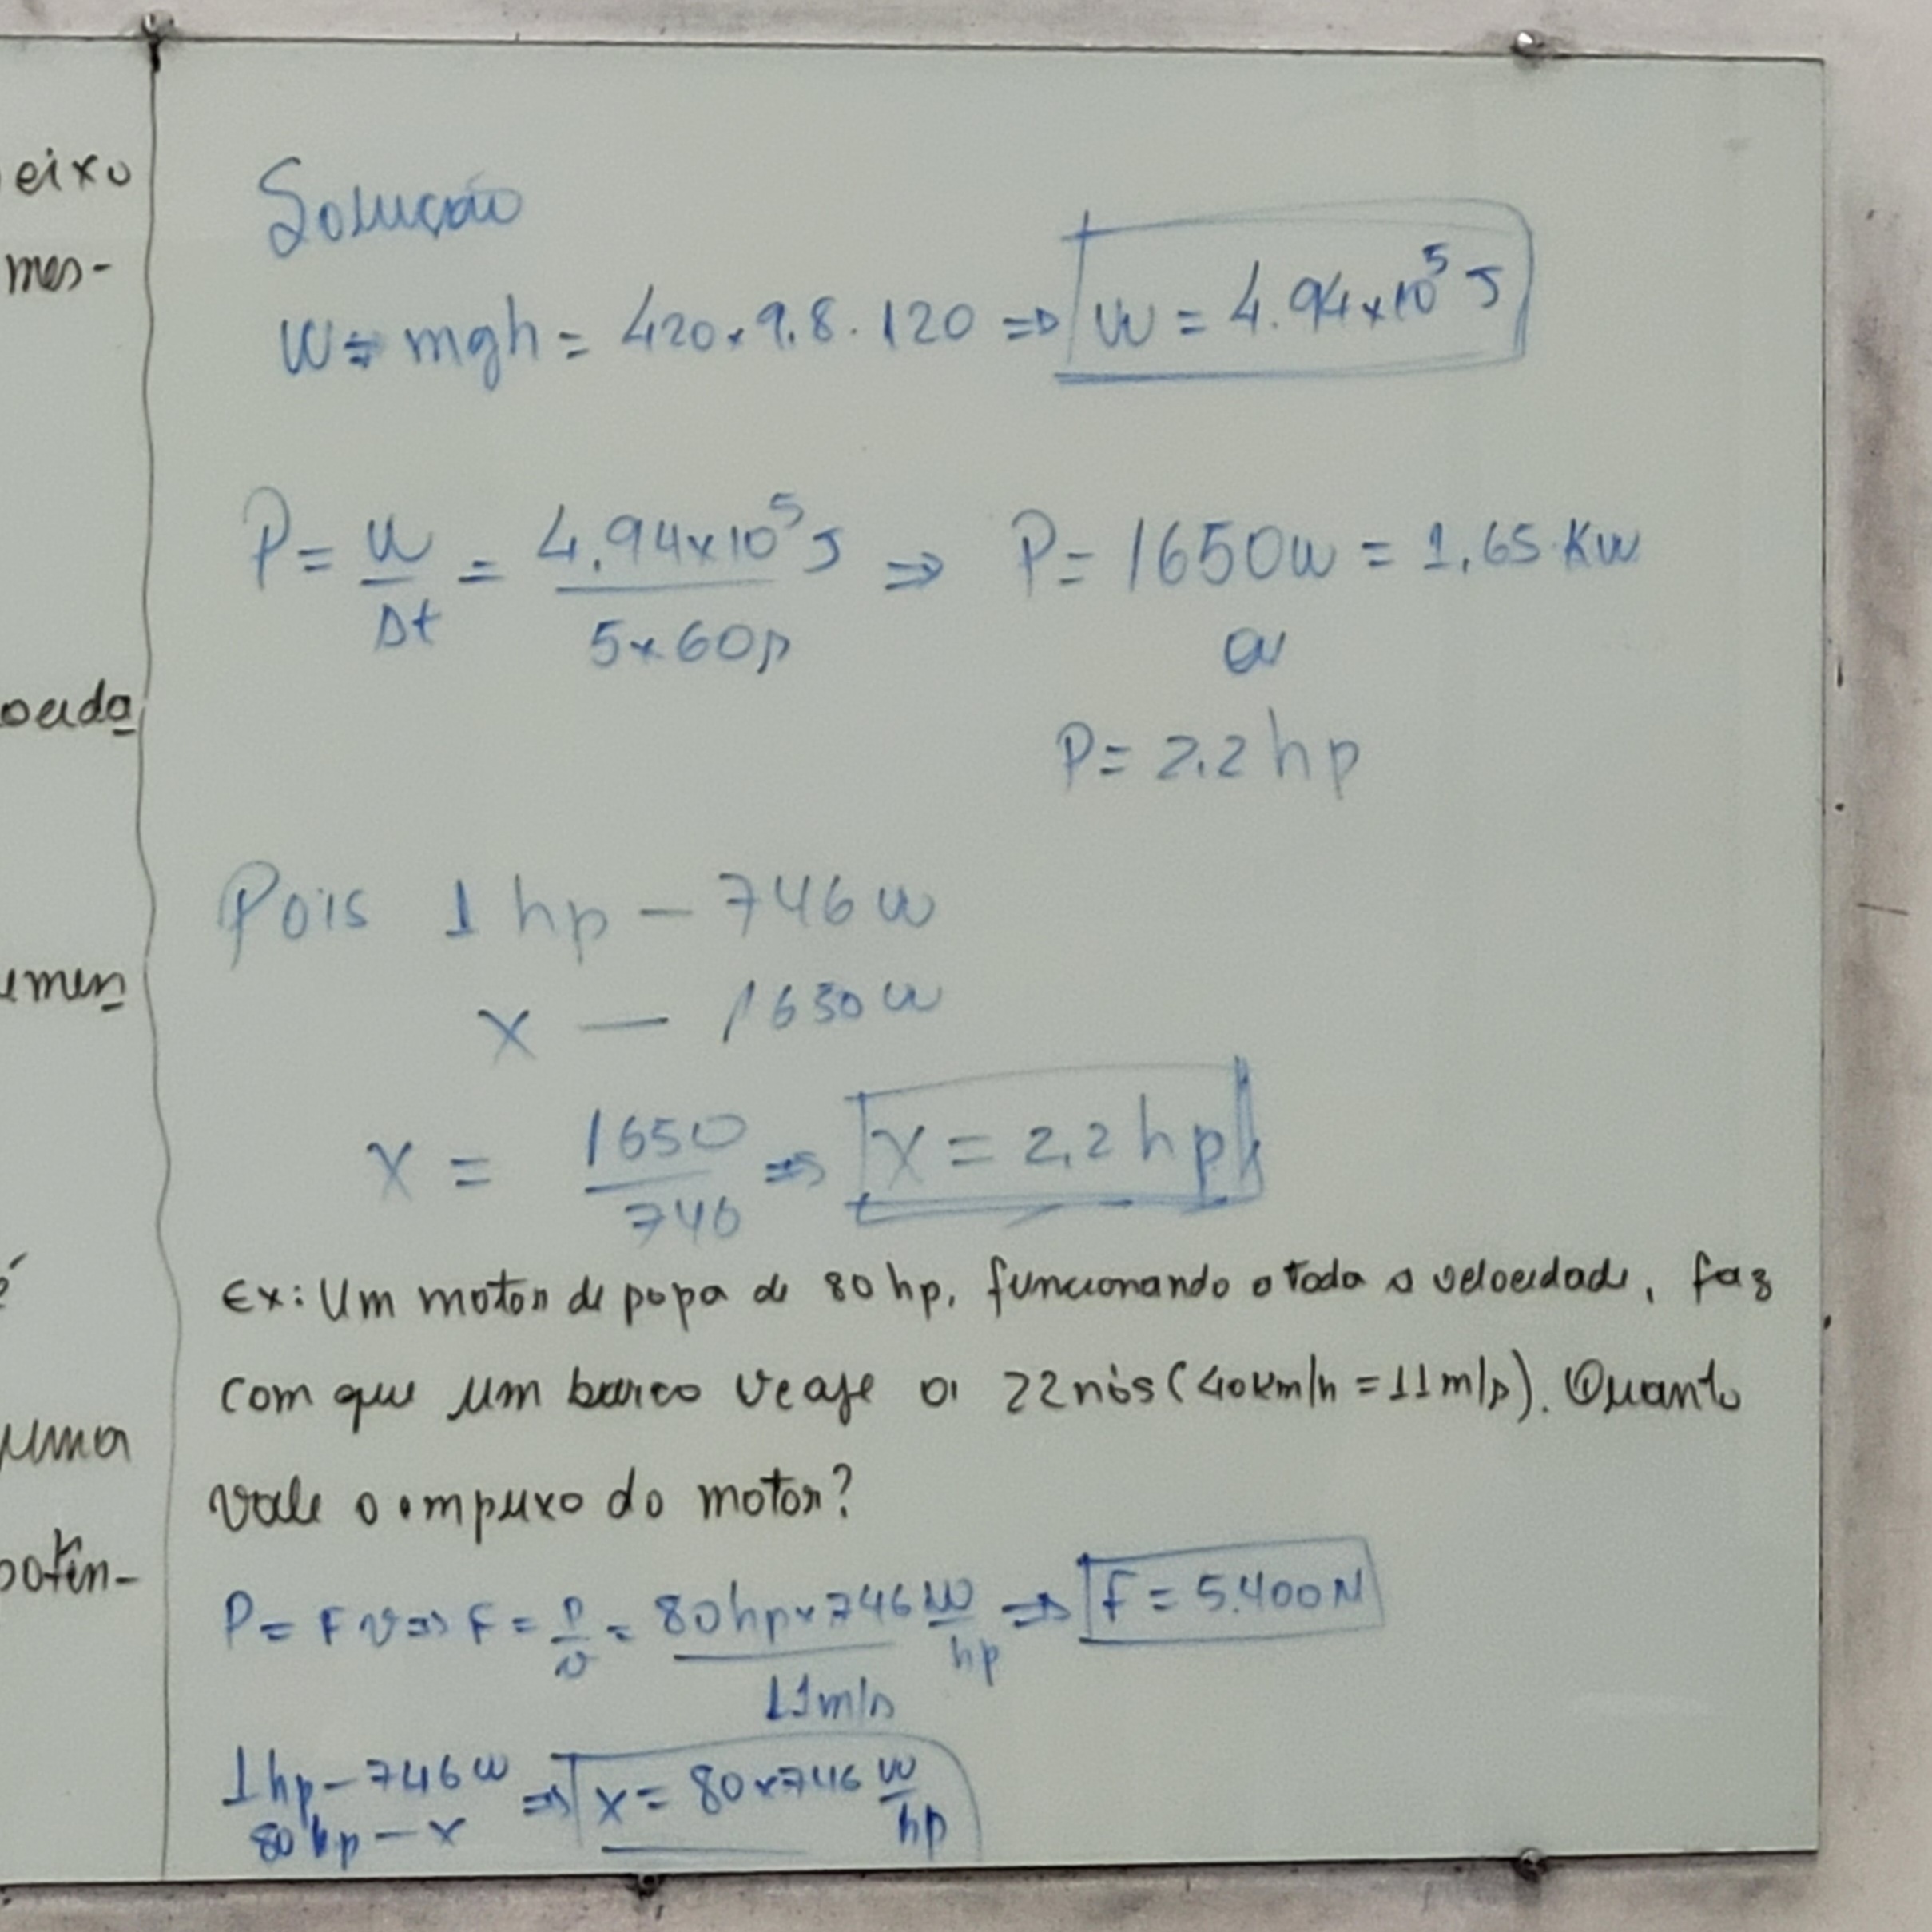 eixo
mes-
uma
Solução
W = mgh = 420 . 9,8 . 120 ⇒ W = 4.94x10⁵ J
P = W/Δt = 4,94x10⁵ J / 5x60s ⇒ P = 1650w = 1,65 Kw
ou
P = 2,2 hp
Pois 1 hp — 746 w
x — 1650 w
x = 1650/746 ⇒ x = 2,2 hp
Ex: Um motor de popa de 80 hp, funcionando a toda a velocidade, faz
com que um barco viaje a 22 nós (40 km/h = 11 m/s). Quanto
vale o empuxo do motor?
P = F v ⇒ F = P/v = 80 hp x 746 W/hp / 11 m/s ⇒ F = 5.400 N
1 hp — 746 w ⇒ x = 80 x 746 W/hp
80 hp — x